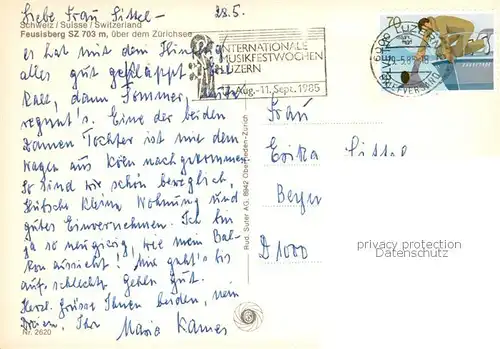 Liebe Frau Sittel - 28.5.
Schweiz / Suisse / Switzerland
Feusisberg SZ 703 m, über dem Zürichsee
es hat mit dem Hinflug
alles gut geklappt, erst
kalt, dann Sommer, heute
regnet's. Eine der beiden
Damen Tochter ist mit dem
Wagen aus Köln nachgekommen
So sind wir schön beweglich,
Hübsche kleine Wohnung und
gutes Einvernehmen. Ich bin
ja so neugierig, wie mein Bal-
kon aussieht! Mir geht's bis
auf schlechtes Gehen gut.
Herzl. Grüsse Ihnen beiden, nein
Dreien. Ihr Marie
Nr. 2620
Rud. Suter AG, 8942 Oberrieden-Zürich
INTERNATIONALE
MUSIKFESTWOCHEN
LUZERN
Aug.-11. Sept. 1985
6000 LUZERN
HELVETIA
70
Frau
Erika Sittel
D 1000
privacy protection
Datenschutz